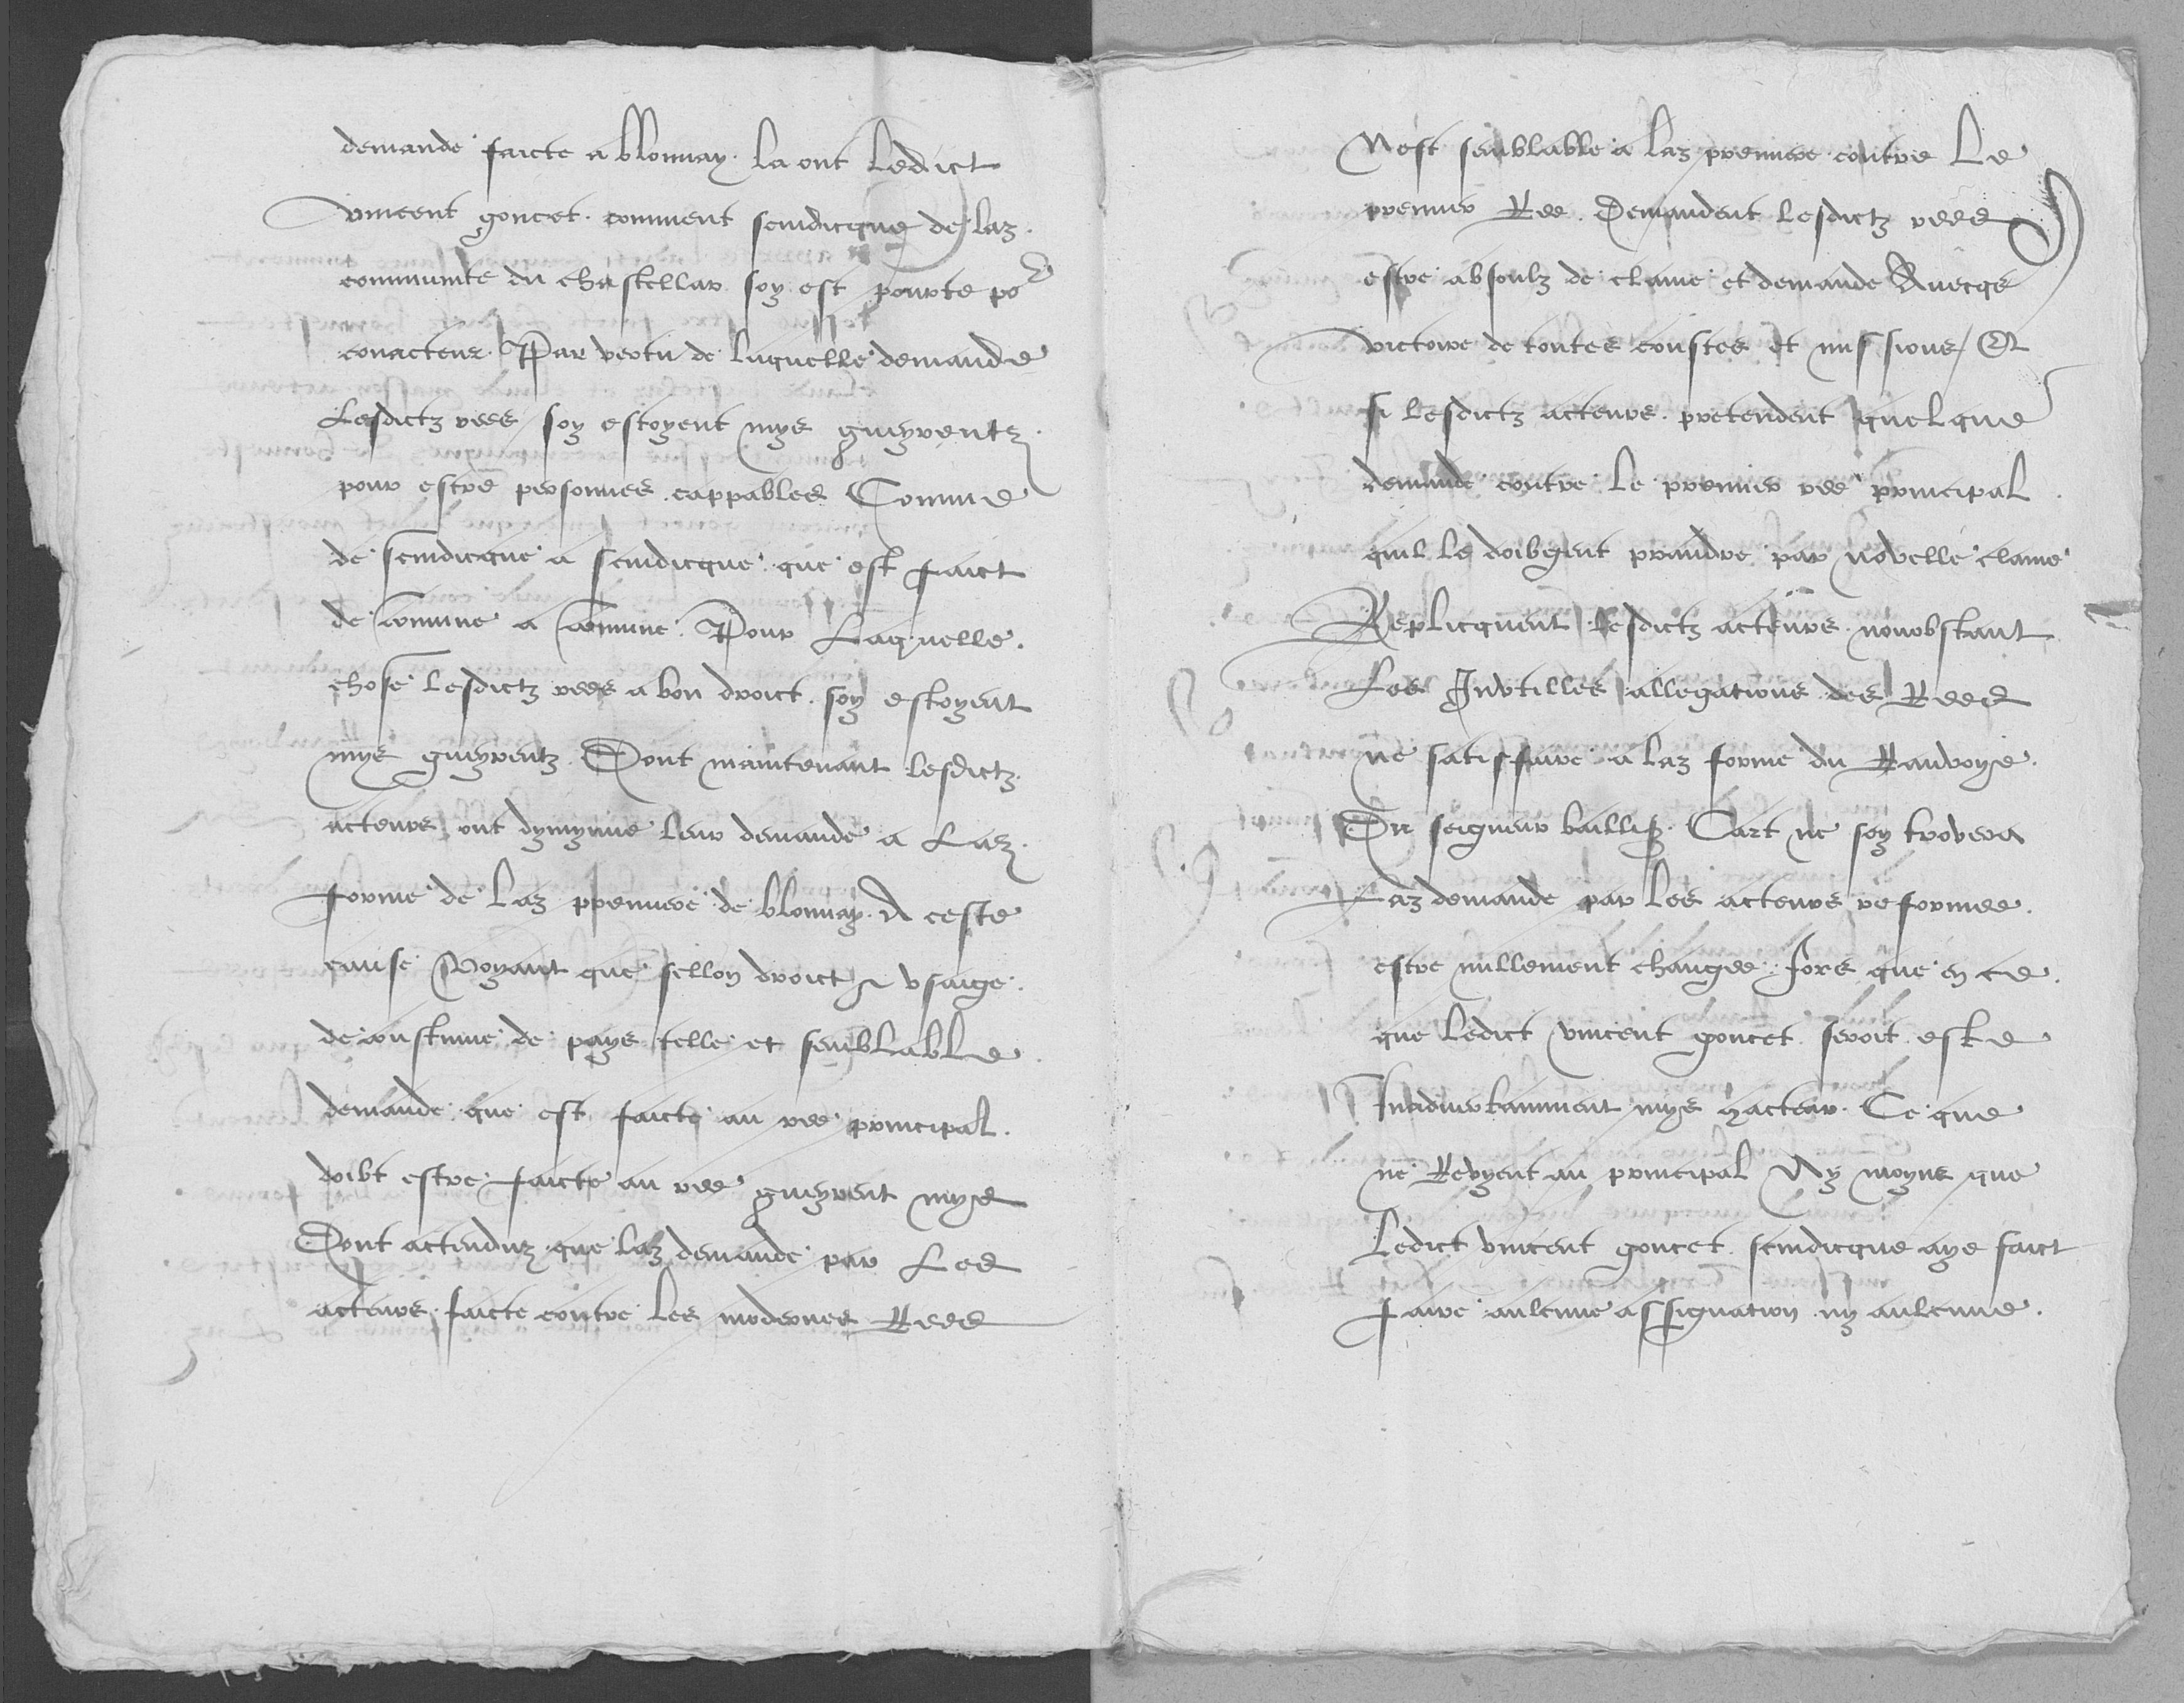 demande faicte a blonnay. la ont ledict
vincent goncet. comment scindicque de laz.
communite du chastellar soy est pourte po^r
conacteur. Par vertu de luquelle demande
Lesdictz rees soy estoyent mys gueyrentz.
pour estre personnes cappables Comme
de scindicque a scindicque que est faict
de comune a comune. Pour Laquelle.
chose lesdictz rees a bon droict. soy estoyent
mys gueyrentz. Dont maintenant lesdictz.
acteurs ont dymynue leur demande a Laz.
forme de laz premiere de blonnay. A ceste
cause Voyant que sellon droict et vsaige.
de coustume de pays telle et semblable.
demande que est faicte au ree principal.
doibt estre faicte au ree gueyrent mys
Dont actenduz que laz demande par Les
acteurs faicte contre les modernes Rees
Nest semblable a laz premiere contre Le
premier Ree. Demandent lesdictz rees
estre absoulz de clame et demande Auecqs
victoire de toutes coustes et missions / Et
si lesdictz acteurs. pretendent quelque
demande contre le premier ree principal.
quil le doibgent prandre par novelle clame
Replicquent lesdictz acteurs. nonobstant
Les Invtilles allegations des Rees
ne satisffaire a laz forme du Ranvoys.
Du seigneur baillifz. Cart ne soy trovera
Laz demande par les acteurs reformee.
estre nullement changee. fors que en ce.
que ledict vincent goncet. seroit este
Inaduertamment mys acteur. Ce que
ne Revyent au principal Ny moyns que
Ledict vincent goncet. scindicque aye faict
faire aulcune assignation ny aulcune.